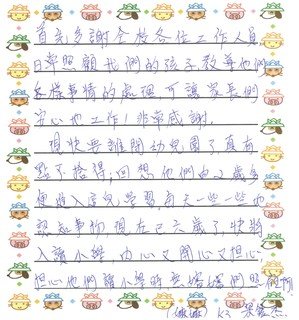 首先多謝全校各位工作人員
日常照顧我們的孩子教導他們
各樣事情的處理可讓家長們
安心地工作！非常感謝。
現快要離開幼兒園了真有
點不捨得，回想他們由2歲多
便進入這兒學習每天一些一些地
認知事物現在已六歲了快將
入讀小學，内心又開心又担心
担心他們讀小學時
K3